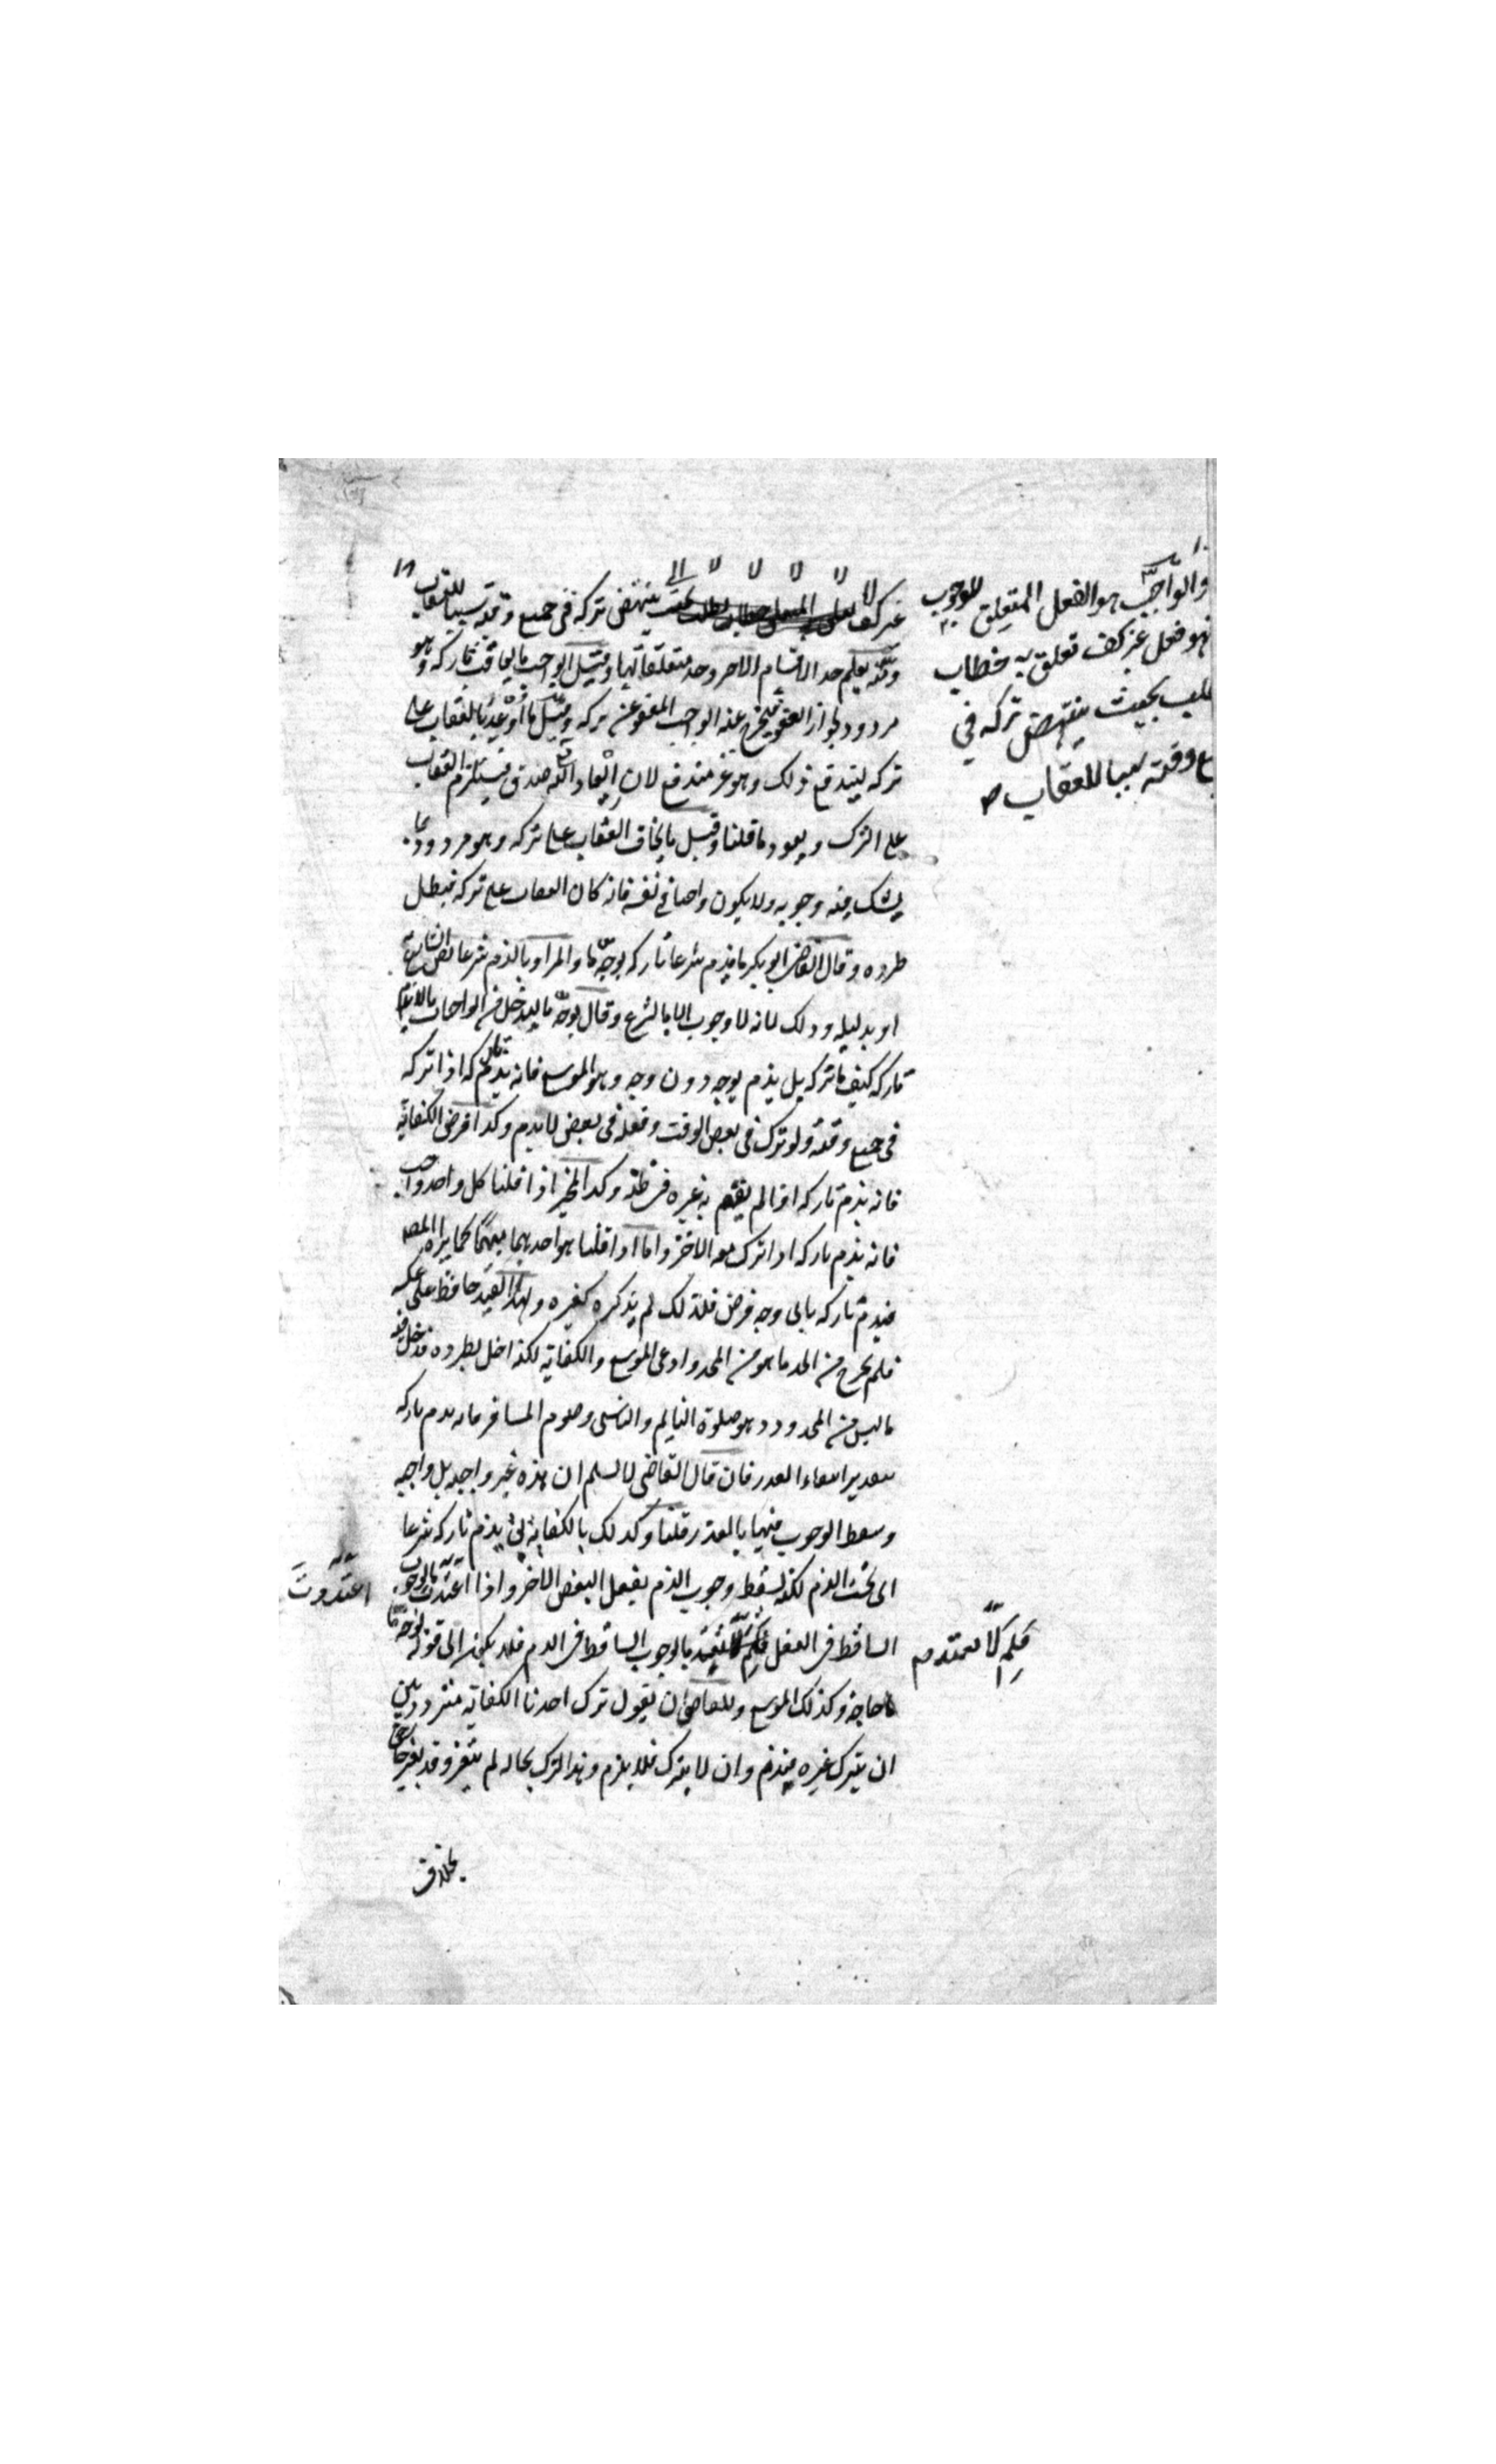 والواجب هو الفعل المتعلق للوجوب
فهو فعل غير كف تعلق به خطاب
طلب بحيث ينتهض تركه في
وقته سببا للعقاب صح
غير كف ينتهض تركه فى جميع وقته سببا للعقاب
ومنه يعلم حد الاقسام الاخر وحد متعلقاتها وقيل الواجب ما يعاقب تاركه وهو
مردود لجواز العفو فيخرج عنه الواجب المعفو عن تركه وقيل ما اوعد بالعقاب على
تركه ليندفع ذلك وهو غير مندفع لان ايعاد الله صدق فيستلزم العقاب
على الترك ويعود ما قلنا وقيل ما يخاف العقاب على تركه وهو مردود بما
يشك فيه وجوبه ولا يكون واجبا فى نفسه فانه كان العقاب على تركه فبطل
طرده وقال القاضى ابو بكر ما يذم شرعا تاركه بوجه ما والمراد بالذم شرعا نص الشارع به
او بدليله وذلك لانه لا وجوب الا بالشرع وقال بوجه ما ليدخل من الواجبات ما لا يذم
تاركه كيف ما تركه بل يذم بوجه دون وجه وهو الموسع فانه يذم تاركه اذا تركه
فى جميع وقته ولو ترك فى بعض الوقت وفعله فى بعض لا يذم وكذا فرض الكفاية
فانه يذم تاركه اذا لم يقم به غيره فى ظنه وكذا المخير اذا قلنا كل واحد واجب
فانه يذم تاركه اذا ترك معه الاخر واما اذا قلنا هو احدهما مبهما كما يراه المصـ
فيذم تاركه باى وجه فرض فلذلك لم يذكره كغيره وبهذا القيد حافظ على عكسه
فلم يخرج من الحد ما هو من المحدود اعنى الموسع والكفاية لكنه اخل بطرده فدخل فيه
ما ليس من المحدود وهو صلوة النايم والناسى وصوم المسافر فانه يذم تاركه
بتقدير انتفاء العذر فان قال القاضى لا نسلم ان هذه غير واجبة بل واجبة
وسقط الوجوب فيها بالعذر قلنا وكذلك بالكفاية يذم تاركه شرعا
اى تحت الذم لكنه يسقط وجوب الذم بفعل البعض الاخر واذا اعتددت بالوجوب
اعتدوت
الساقط فى الفعل فلم لا تعتد بالوجوب الساقط فى الذم فلا يكون الى قوله بوجه ما
فلم لا تعتد صح
حاجة وكذلك الموسع وللقاضى ان يقول ترك احدنا الكفاية متردد بين
ان يترك غيره فيذم وان لا يترك فلا يذم وهذا الترك بحاله لم يتغير وقد تغير خارجى
بخلاف